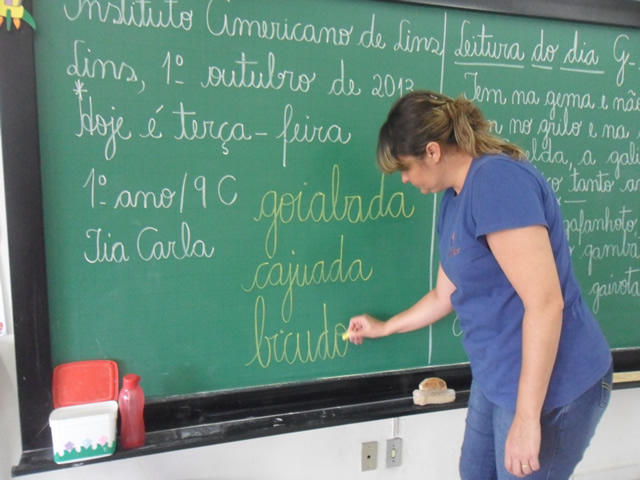 Instituto Americano de Lins
Lins, 1º outubro de 2013
*Hoje é terça-feira
1º ano/9 C
Tia Carla
goiabada
cajuada
bicudo
Leitura do dia G-
Tem na gema e não
no grilo e na
a gali
tanto
gafanhoto,
gambá
gaivota